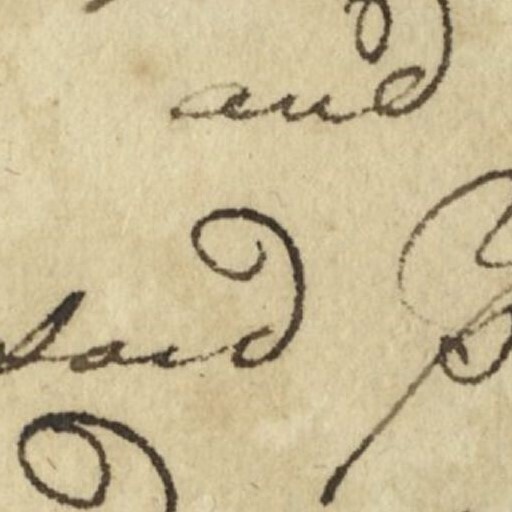 and
said